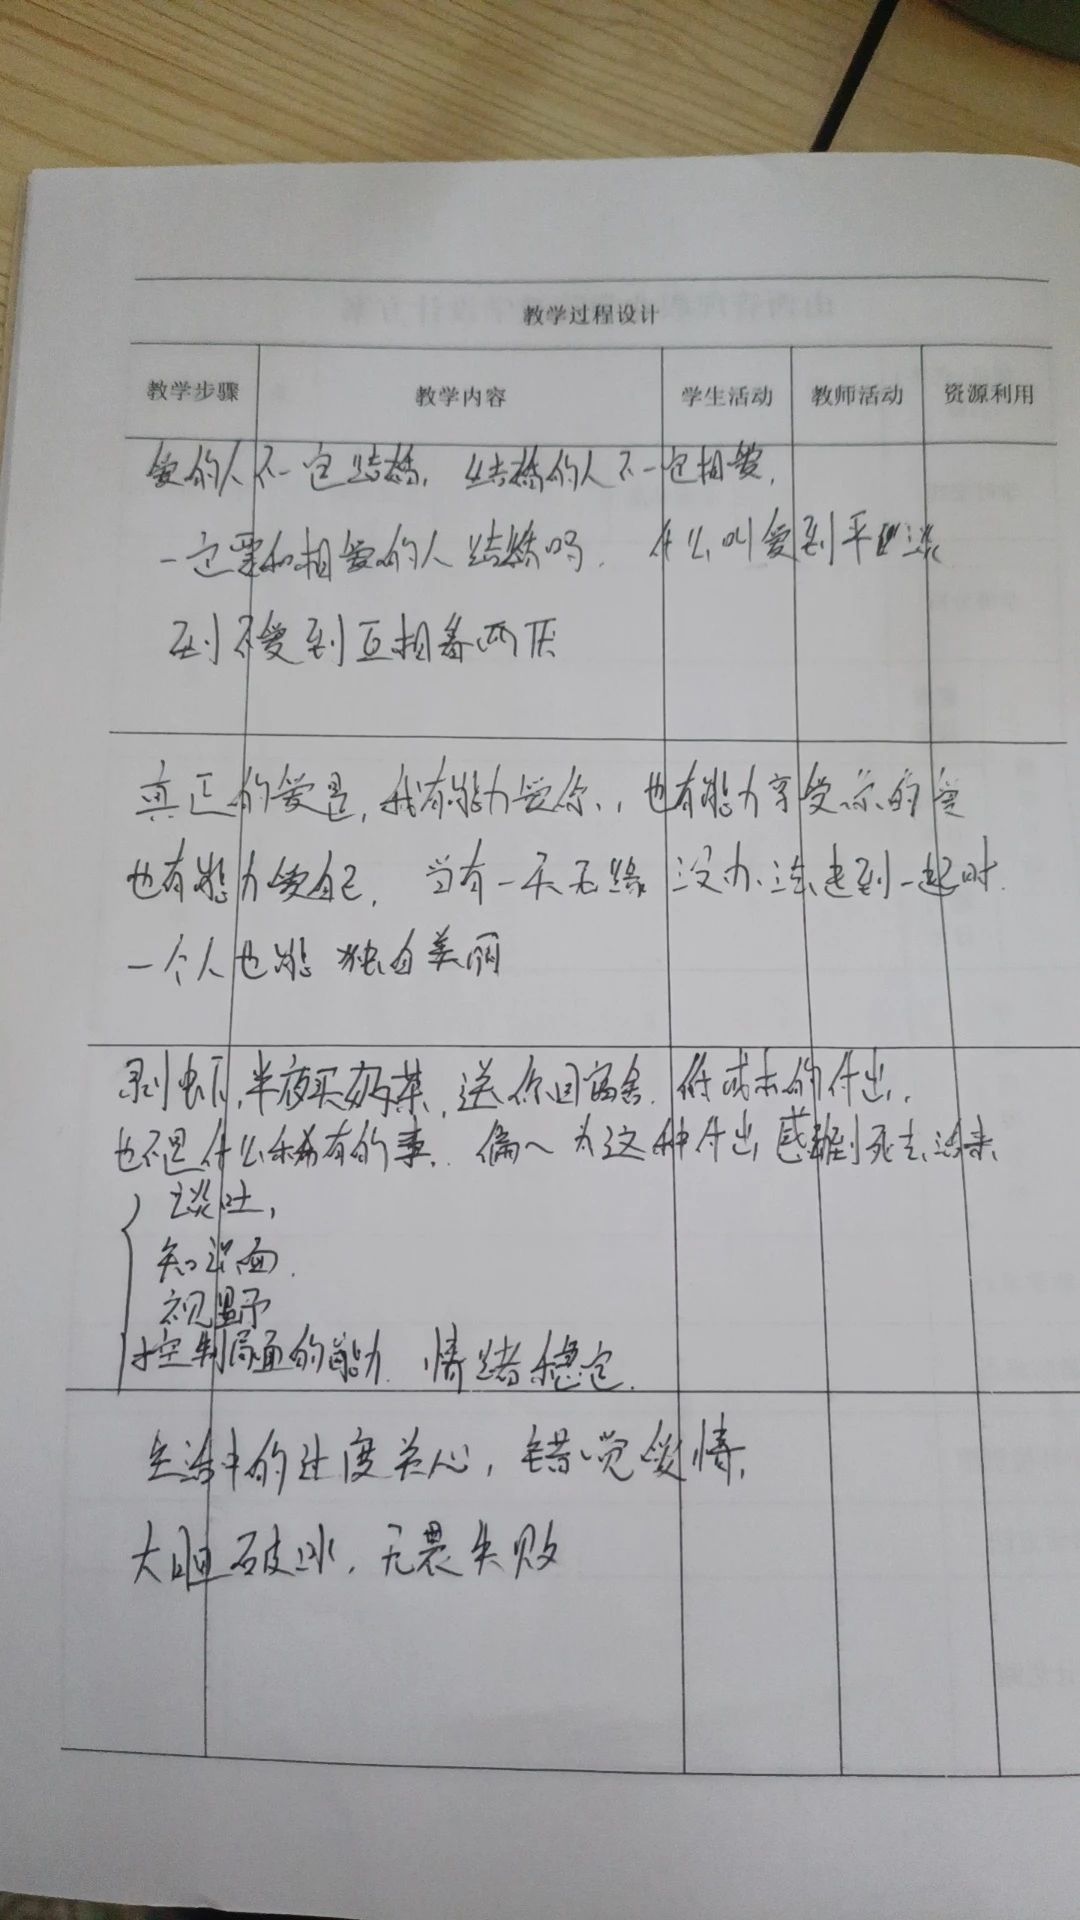 教学过程设计
教学步骤 教学内容 学生活动 教师活动 资源利用
爱的人不一定结婚，结婚的人不一定相爱，
一定要和相爱的人结婚吗． 什么叫爱到平淡
到不爱到互相看两厌
真正的爱是，我有能力爱你，，也有能力享受你的爱
也有能力爱自己， 当有一天无缘 没办法走到一起时．
一个人也能 独自美丽
剥虾，半夜买奶茶，送你回宿舍．低成本的付出，
也不是什么稀有的事．．偏偏为这种付出感动到死去活来、
谈吐，
知识面．
视野
控制局面的能力． 情绪稳定．
生活中的过度关心，错觉爱情，
大胆破冰．无畏失败